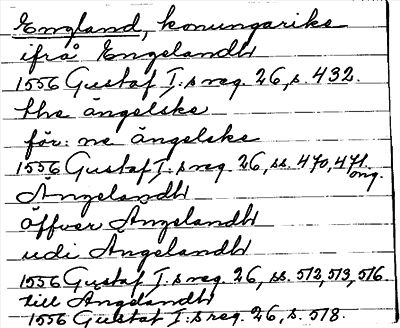 England, konungarike
ifrå Engelandh
1556 Gustaf I:s reg. 26, s. 432.
the ängelske
för: ne ängelske
1556 Gustaf I:s reg. 26, ss. 470, 471.
ong.
Ängelandh
äffver Angelandh
udi Angelandh
1556 Gustaf I:s reg. 26, ss. 512, 513, 516.
till Angelandh
1556 Gustaf I:s reg. 26, s. 518.